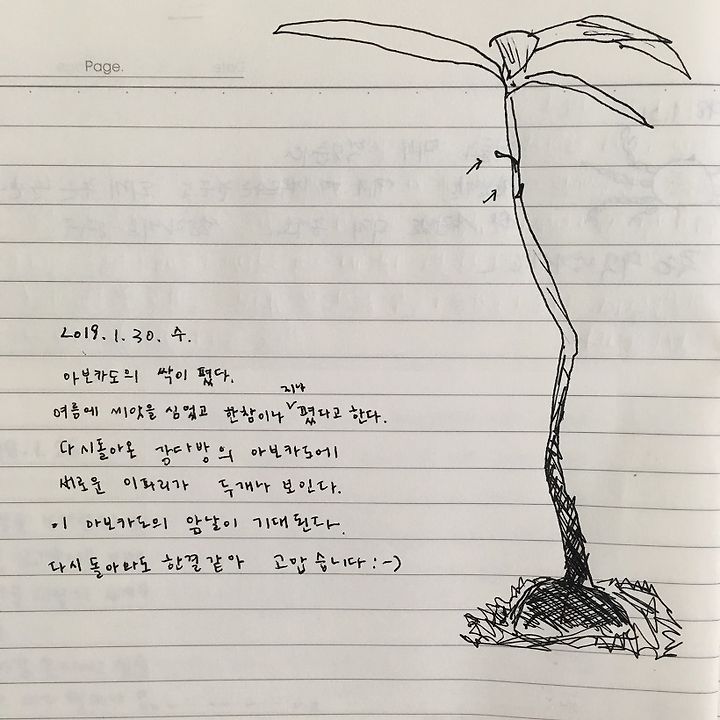 Page.
2019.1.30. 수.
아보카도의 싹이 폈다.
여름에 씨앗을 심었고 한참이나 지나 폈다고 한다.
다시돌아온 감다방의 아보카도에
새로운 이파리가 두개나 보인다.
이 아보카도의 앞날이 기대된다.
다시 돌아와도 한결같아 고맙습니다 :-)